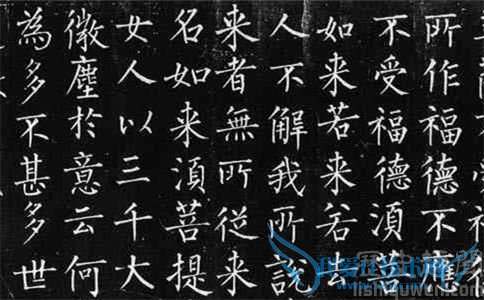 所作福德不應
不受福德須菩
如来若来若去
人不解我所說
来者無所從来
名如来湏菩提
女人以三千大
微塵於意云何
為多不甚多世